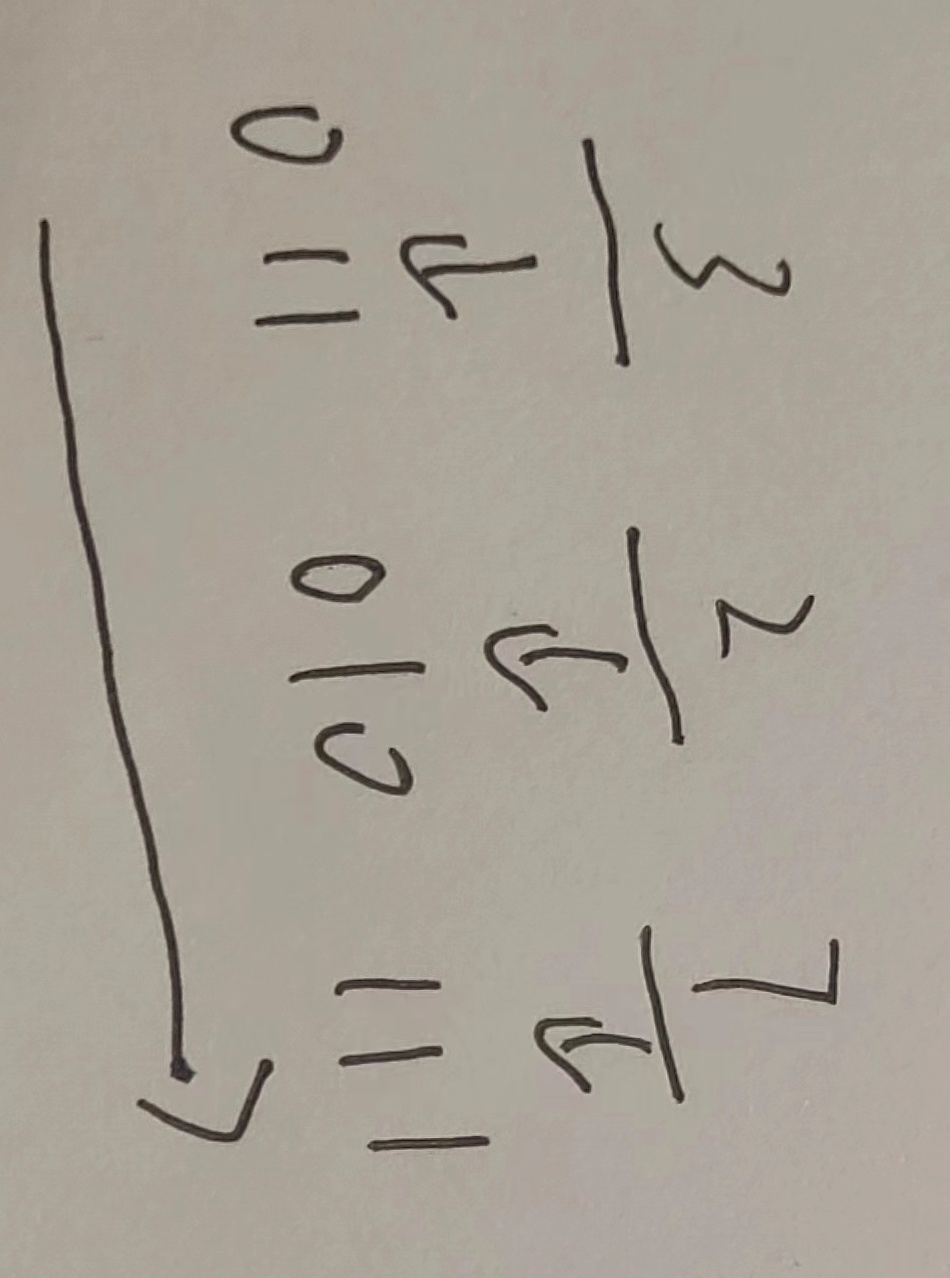 3 2 7
011 010 111